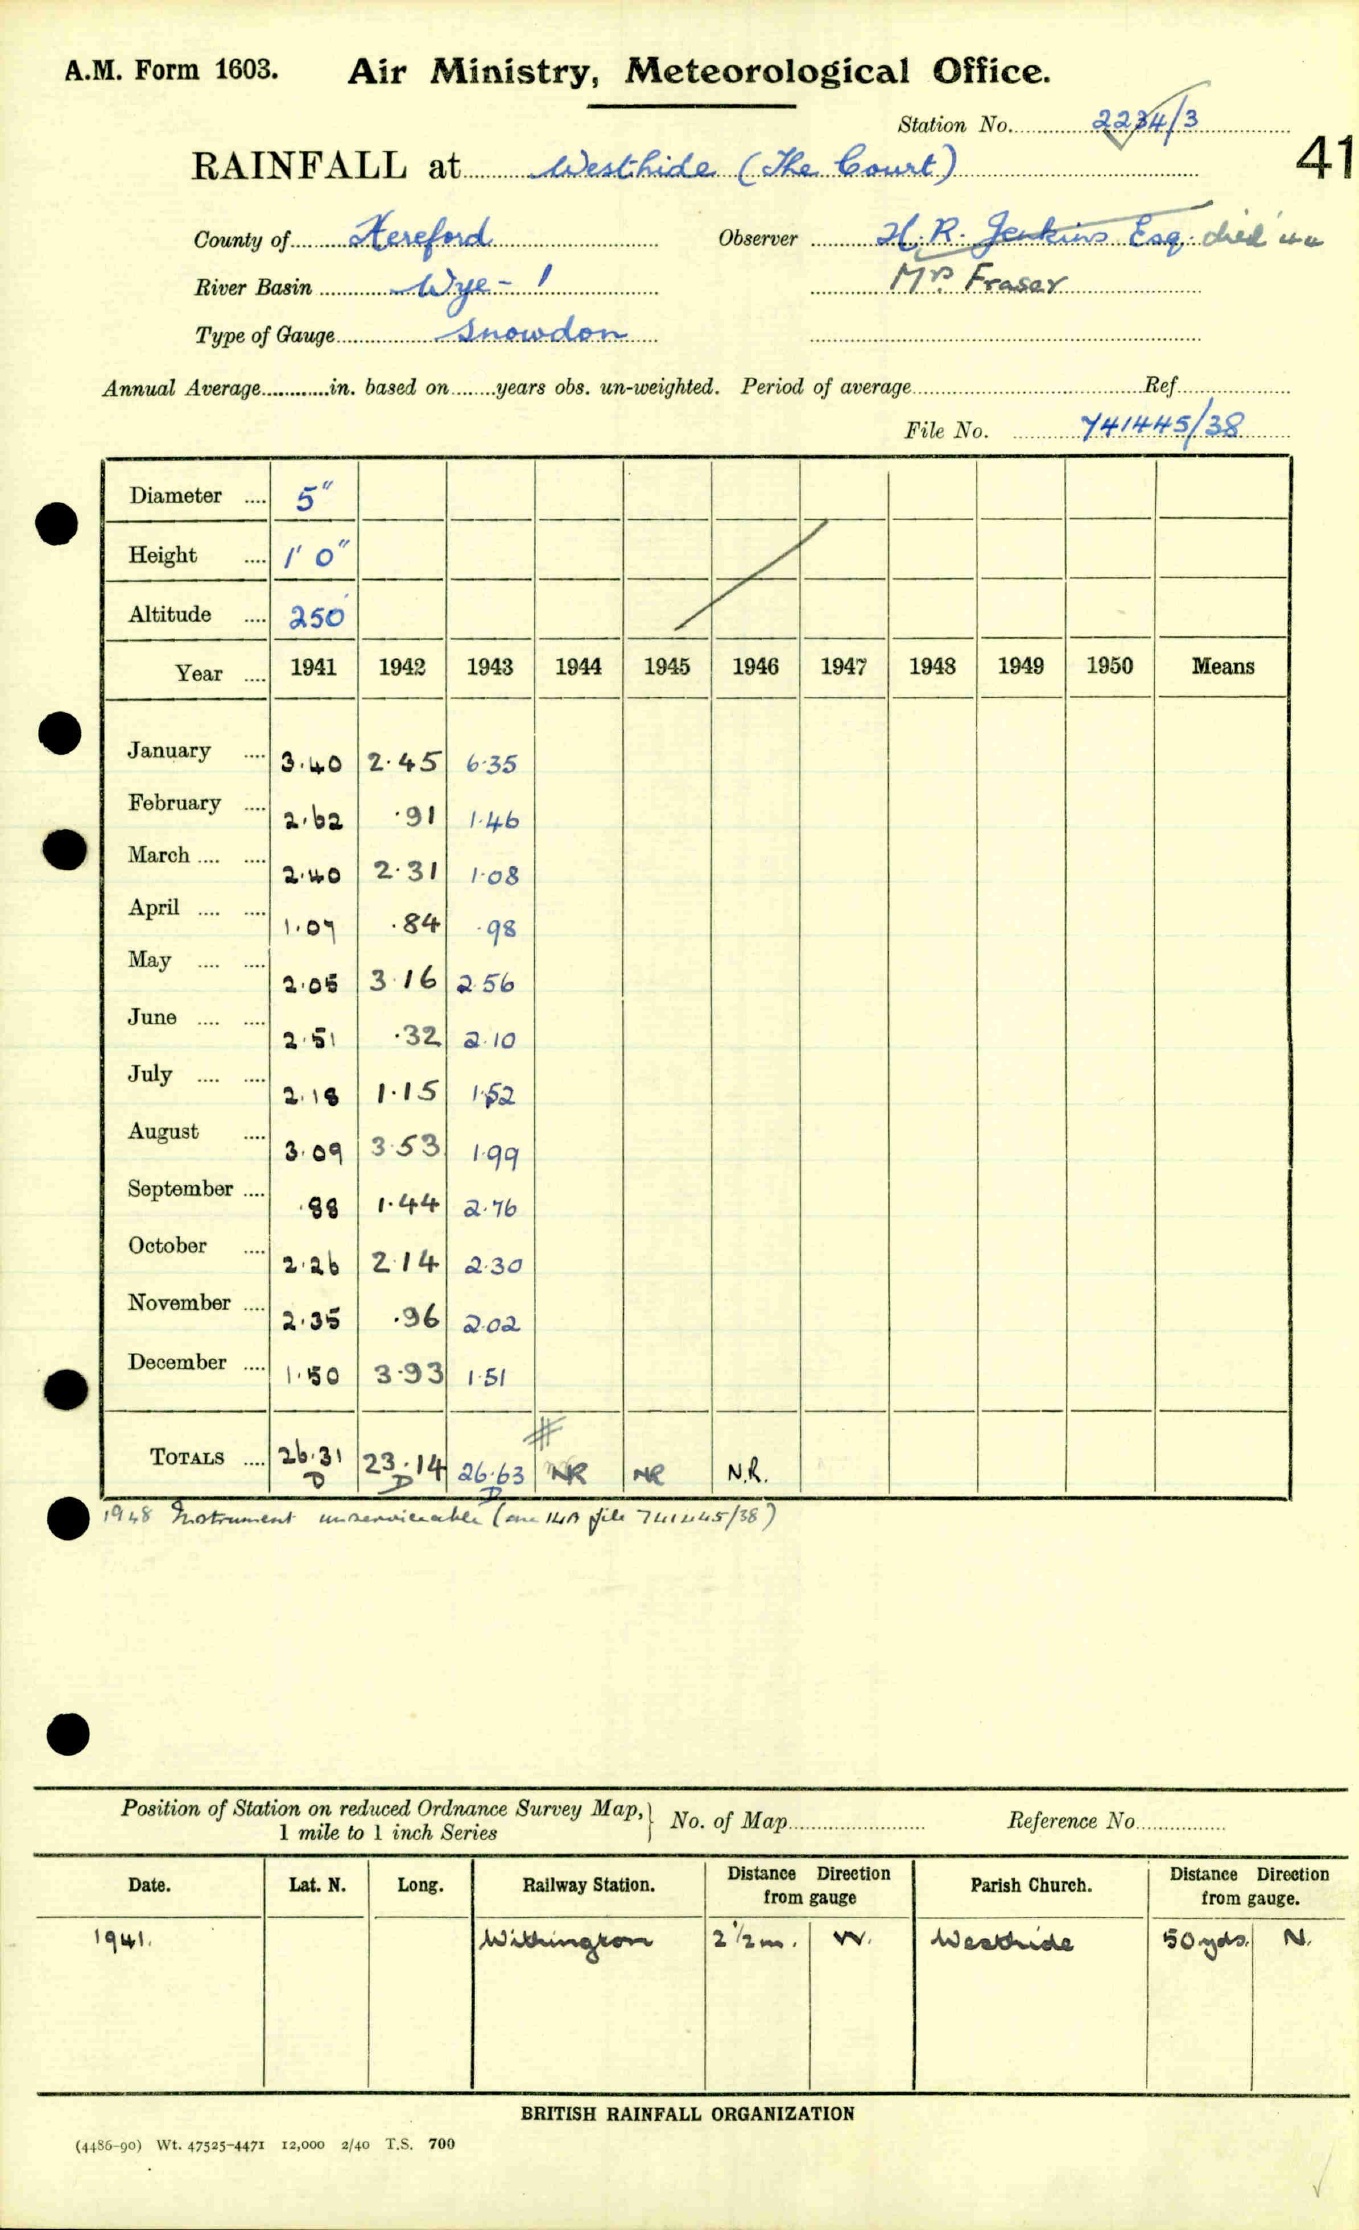 A.M. Form 1603. Air Ministry, Meteorological Office.
Station No. 2234/3
41
RAINFALL at Westhide (The Court)
County of Hereford Observer H. R. Jenkins Esq. died
River Basin Wye - 1 Mrs. Fraser
Type of Gauge Snowdon
Annual Average in. based on years obs. un-weighted. Period of average Ref.
File No. 741445/38
Diameter 5"
Height 1' 0"
Altitude 250'
Year 1941 1942 1943 1944 1945 1946 1947 1948 1949 1950 Means
January 3.40 2.45 6.35
February 2.62 .91 1.46
March 2.40 2.31 1.08
April 1.07 .84 .98
May 2.05 3.16 2.56
June 2.51 .32 2.10
July 2.18 1.15 1.52
August 3.09 3.53 1.99
September .88 1.44 2.76
October 2.26 2.14 2.30
November 2.35 .96 2.02
December 1.50 3.93 1.51
TOTALS 26.31 23.14 26.63 NR NR N.R.
D D D
1948 Instrument unserviceable ( 14A file 741445/38)
Position of Station on reduced Ordnance Survey Map, } No. of Map Reference No.
1 mile to 1 inch Series
Date. Lat. N. Long. Railway Station. Distance Direction from gauge Parish Church. Distance Direction from gauge.
1941. Withington 2 1/2 m. W. Westhide 50 yds. N.
BRITISH RAINFALL ORGANIZATION
(4486-90) Wt. 47525-4471 12,000 2/40 T.S. 700